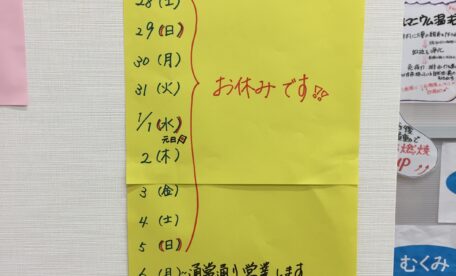 28(土)
29(日)
30(月)
31(火)
1/1(水)
元日
2(木)
3(金)
4(土)
5(日)
6(月)~通常通り営業します
お休みです!!
燃焼
むくみ